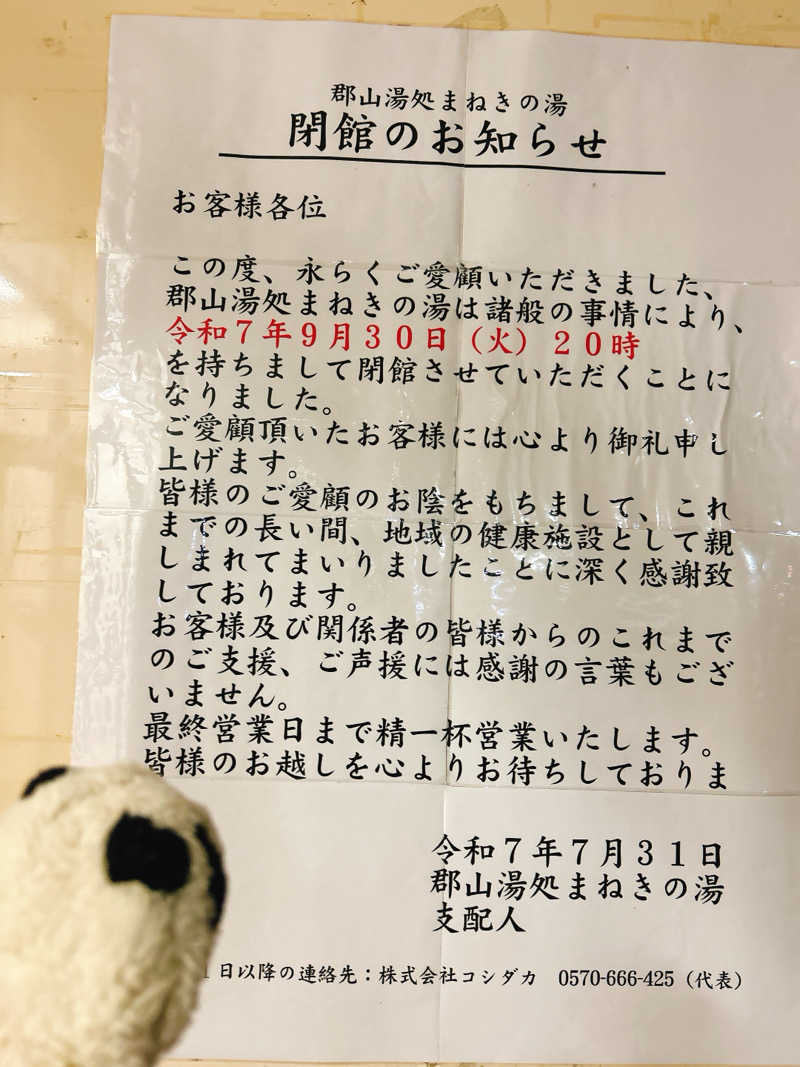 郡山湯処まねきの湯
閉館のお知らせ
お客様各位
この度、永らくご愛顧いただきました、
郡山湯処まねきの湯は諸般の事情により、
令和７年９月３０日（火）２０時
を持ちまして閉館させていただくことに
なりました。
ご愛顧頂いたお客様には心より御礼申し
上げます。
皆様のご愛顧のお陰をもちまして、これ
までの長い間、地域の健康施設として親
しまれてまいりましたことに深く感謝致
しております。
お客様及び関係者の皆様からのこれまで
のご支援、ご声援には感謝の言葉もござ
いません。
最終営業日まで精一杯営業いたします。
皆様のお越しを心よりお待ちしておりま
令和７年７月３１日
郡山湯処まねきの湯
支配人
日以降の連絡先：株式会社コシダカ　0570-666-425（代表）